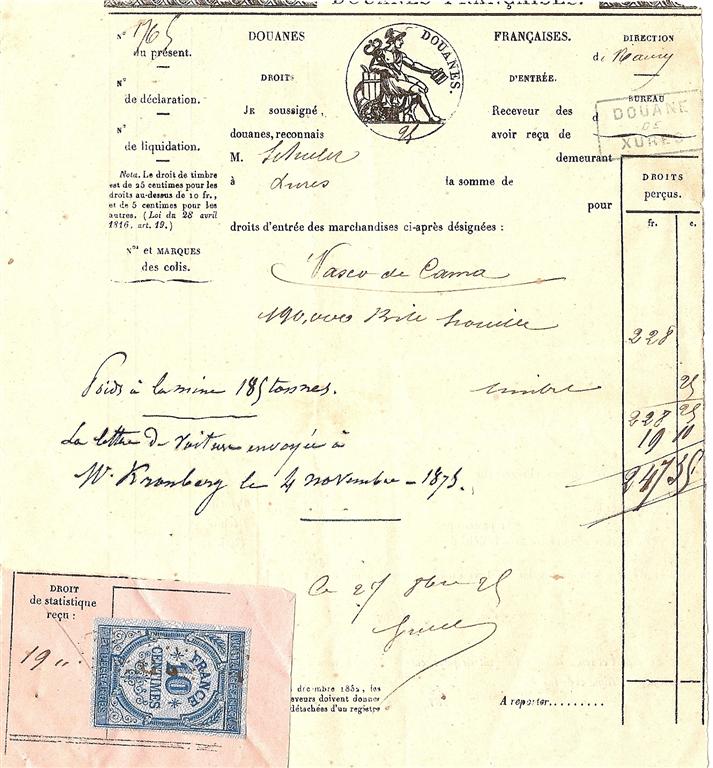 DOUANES FRANÇAISES.
N° 1765
du présent.
N°
de déclaration.
N°
de liquidation.
Nota. Le droit de timbre
est de 25 centimes pour les
droits au-dessus de 10 fr.,
et de 5 centimes pour les
autres. (Loi du 28 avril
1816, art. 19.)
Nos et MARQUES
des colis.
DOUANES FRANÇAISES.
DOUANES.
DROITS D'ENTRÉE.
JE soussigné, Receveur des
douanes, reconnais avoir reçu de
M. demeurant
à Xures la somme de
pour
droits d'entrée des marchandises ci-après désignées :
DIRECTION
de
BUREAU
d
DOUANE
DE
XURES
DROITS
perçus.
fr. c.
Vasco de Gama
190,000 Kil houille
228
Poids à la mine 185 tonnes.
timbre 25
228 25
La lettre de voiture envoyée à
19 10
W. Kronberg le 4 novembre - 1875.
247 35
Ce 27 8bre 75
DROIT
de statistique
reçu :
19 "
FRANCE
10
CENTIMES
décembre 1852, les
ceveurs doivent donner
détachées d'un registre
A reporter.........